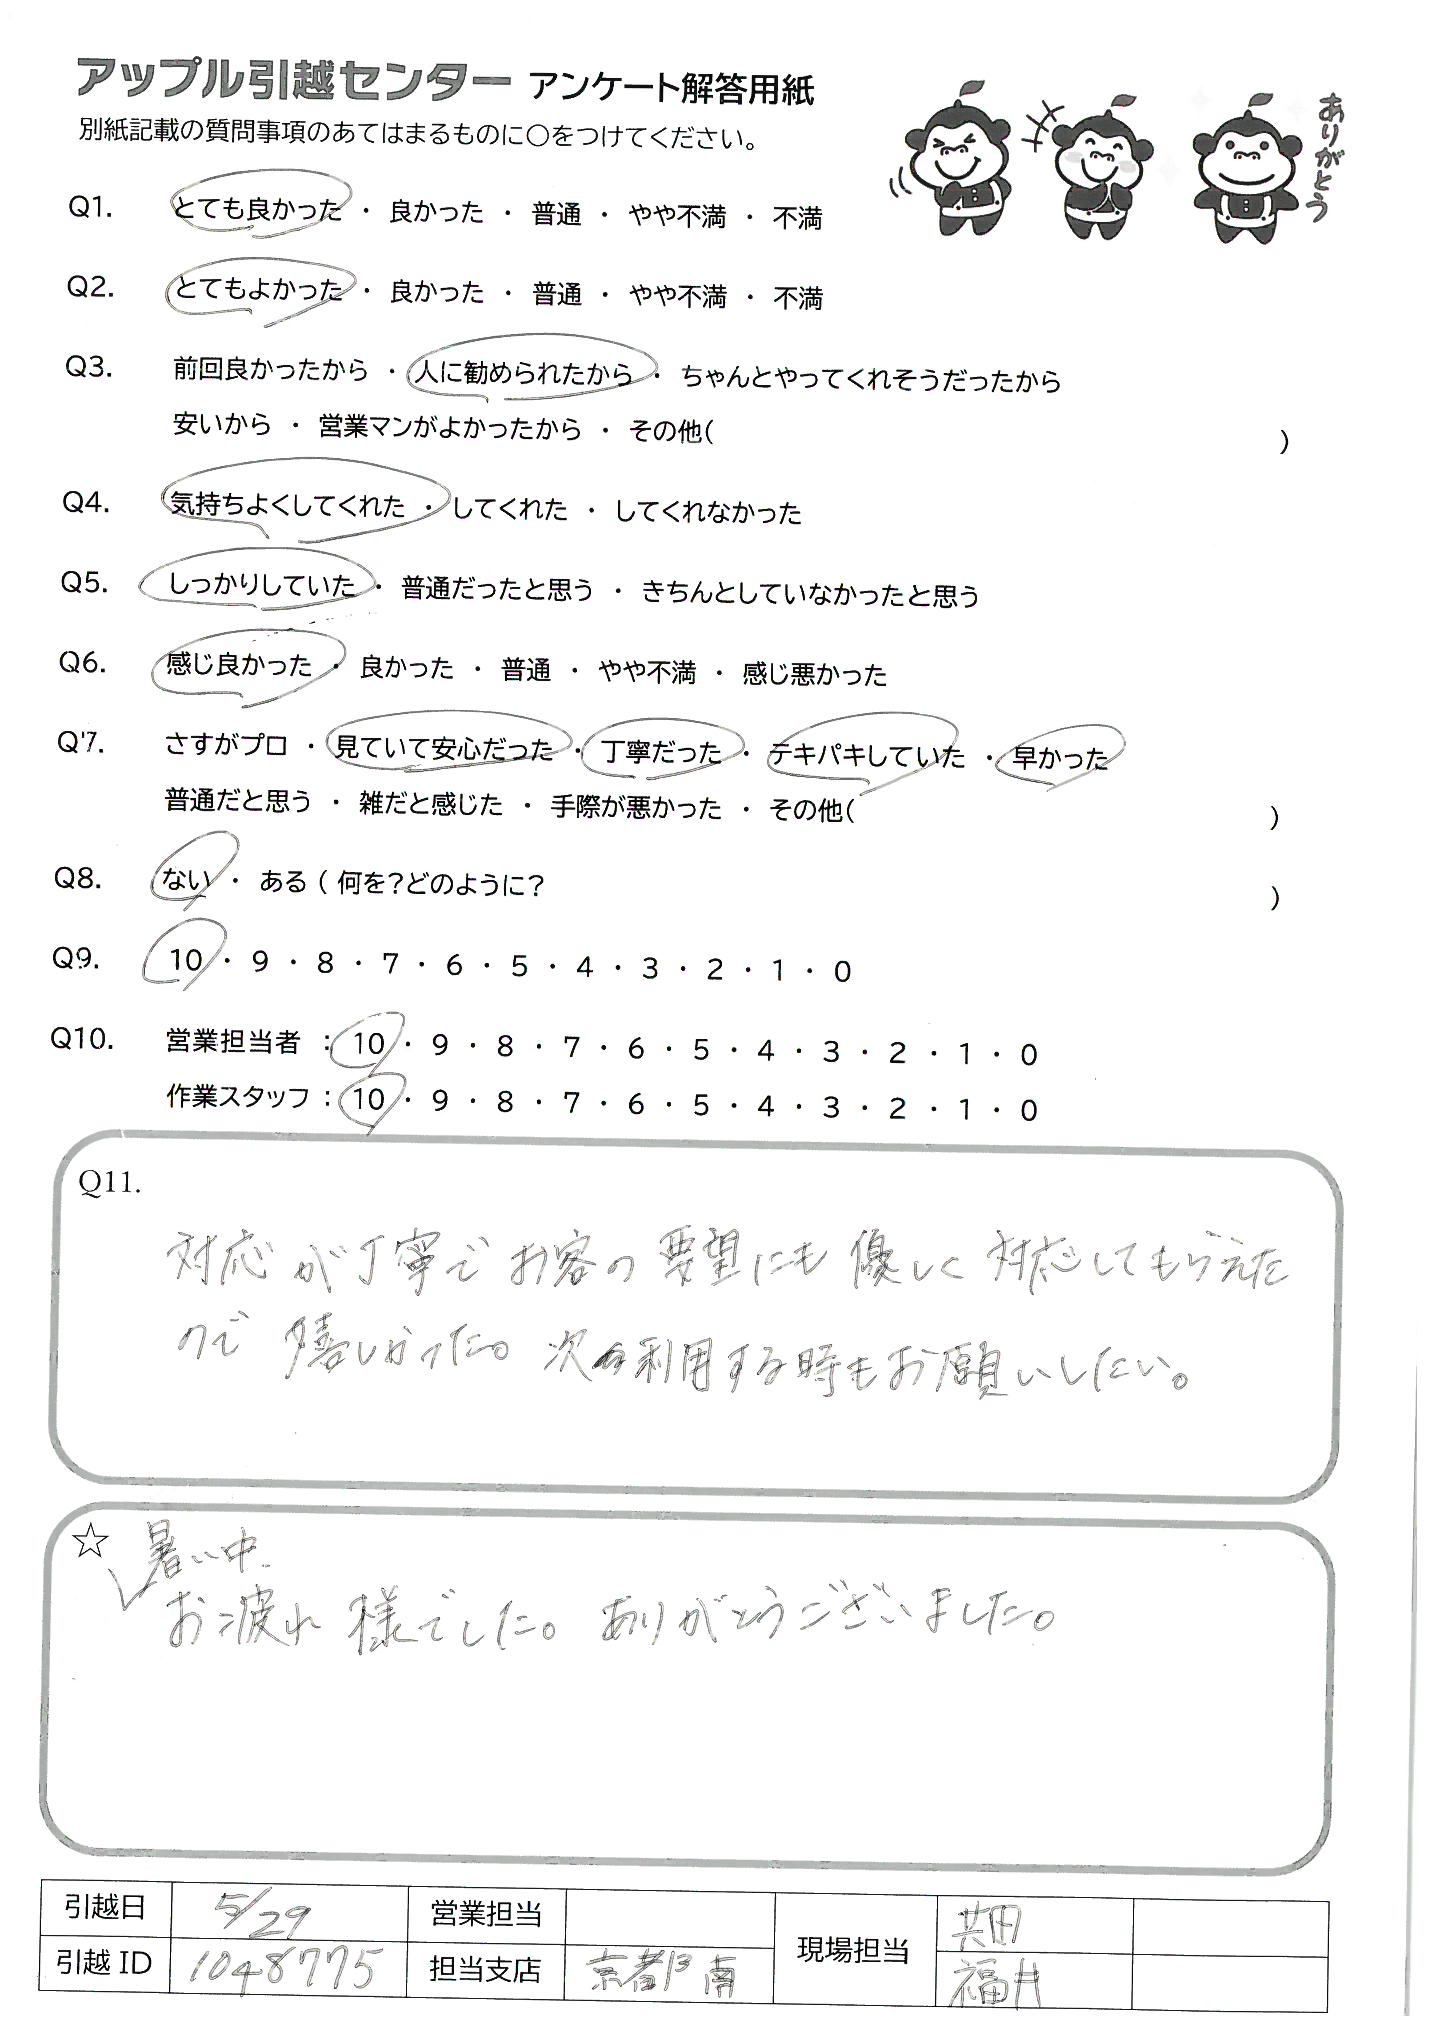 アップル引越センター アンケート解答用紙
ありがとう
別紙記載の質問事項のあてはまるものに〇をつけてください。
Q1. とても良かった ・ 良かった ・ 普通 ・ やや不満 ・ 不満
Q2. とてもよかった ・ 良かった ・ 普通 ・ やや不満 ・ 不満
Q3. 前回良かったから ・ 人に勧められたから ・ ちゃんとやってくれそうだったから
安いから ・ 営業マンがよかったから ・ その他( )
Q4. 気持ちよくしてくれた ・ してくれた ・ してくれなかった
Q5. しっかりしていた ・ 普通だったと思う ・ きちんとしていなかったと思う
Q6. 感じ良かった ・ 良かった ・ 普通 ・ やや不満 ・ 感じ悪かった
Q7. さすがプロ ・ 見ていて安心だった ・ 丁寧だった ・ テキパキしていた ・ 早かった
普通だと思う ・ 雑だと感じた ・ 手際が悪かった ・ その他( )
Q8. ない ・ ある ( 何を?どのように? )
Q9. 10 ・ 9 ・ 8 ・ 7 ・ 6 ・ 5 ・ 4 ・ 3 ・ 2 ・ 1 ・ 0
Q10. 営業担当者 : 10 ・ 9 ・ 8 ・ 7 ・ 6 ・ 5 ・ 4 ・ 3 ・ 2 ・ 1 ・ 0
作業スタッフ : 10 ・ 9 ・ 8 ・ 7 ・ 6 ・ 5 ・ 4 ・ 3 ・ 2 ・ 1 ・ 0
Q11.
対応が丁寧でお客の要望にも優しく対応してもらえた
ので嬉しかった。次利用する時もお願いしたい。
☆ 暑い中
お疲れ様でした。ありがとうございました。
引越日 5/29 営業担当 現場担当 共田
引越 ID 1048775 担当支店 京都南 福井